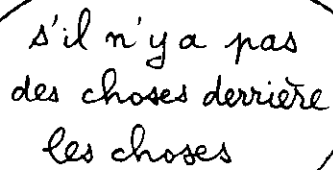 s'il n'y a pas
des choses derrière
les choses